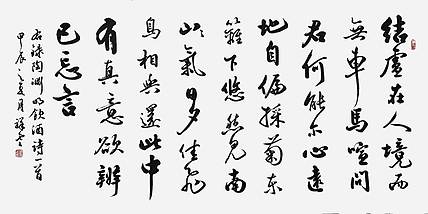 結廬在人境而
無車馬喧問
君何能尔心遠
地自偏採菊東
籬下悠然見南
山々氣日夕佳飛
鳥相與還此中
有真意欲辨
已忘言
右録陶淵明飲酒詩一首
甲辰之夏月